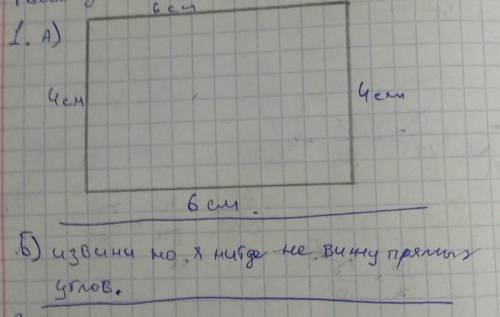 6 см
1. А)
4 см
4 см
6 см.
Б) извини но я нигде не вижу прямых
углов.